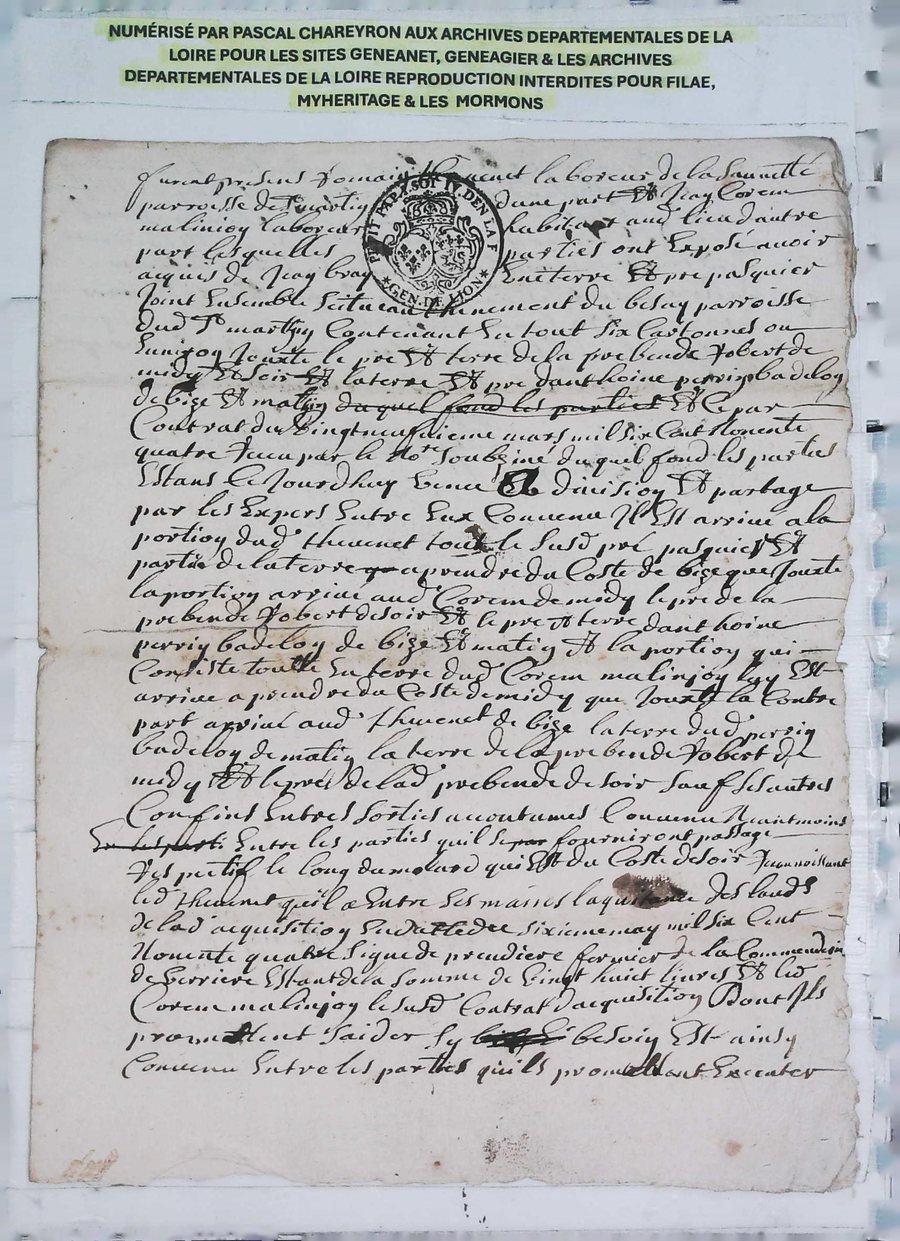 NUMÉRISÉ PAR PASCAL CHAREYRON AUX ARCHIVES DEPARTEMENTALES DE LA
LOIRE POUR LES SITES GENEANET, GENEAGIER & LES ARCHIVES
DEPARTEMENTALES DE LA LOIRE REPRODUCTION INTERDITES POUR FILAE,
MYHERITAGE & LES MORMONS
furent presens Romain thevenet laboreur de la
parroisse de St martin dune part Et Jean Corem
malinjoy laboreur habitant aud lieu dautre
part lesquelles parties ont Exposé avoir
acquis de Jean bray Une terre Et pre pasquier
Joint Ensemble scitue au thenement du besay parroisse
dud St martin Contenant En tout six Cartonnes ou
Environ Jouxte le pre Et terre de la prebende Robert de
midy Et soir Et la terre Et pre danthoine perrin badeloy
de bize Et matin duquel fond les parties Et Ce par
Contrat du Vingtneufvieme mars mil six Cent Nonente
quatre Receu par le Nore soubsigné duquel fond les parties
Estans Ce Jourdhuy Venue a division Et partage
par les Expers Entre Eux Convenu Il Est arrive a la
portion dud thevenet tout le susd pré pasquier Et
partie de la terre a prendre du Coste de bize que Jouxte
la portion arrivee aud Corem de midy le pre de la
prebende Robert de soir Et le pre Et terre danthoine
perrin badeloy de bize Et matin Et la portion qui
Consiste toutte En terre dud Corem malinjoy luy Est
arrivee a prendre du Coste de midy que Jouxte la Contre
part arrivee aud thevenet de bize la terre dud perrin
badeloy de matin la terre de la prebende Robert de
midy Et le pres de lad prebende de soir sauf ses autres
Confins Entres sorties accoutumes Convenu Neantmoins
Entre les parties quil se fourniront passage
Respectif le long du molard qui Est du Coste de soir Reconnoissant
led thevenet quil a Entre ses mains la quittance des lauds
de lad acquisition En datte du sixieme may mil six Cent
Nonente quatre signe de prendiere fermier de la Commenderie
de Verriere Estant de la somme de Vingt huict livres Et led
Corem malinjoy le susd Contrat dacquisition Dont Ils
promettent saider sy besoin Est ainsy
Convenu Entre les parties quils promettent Executer
PETIT PAP. 4 SOL IV. DEN LA F
GEN. DE LION